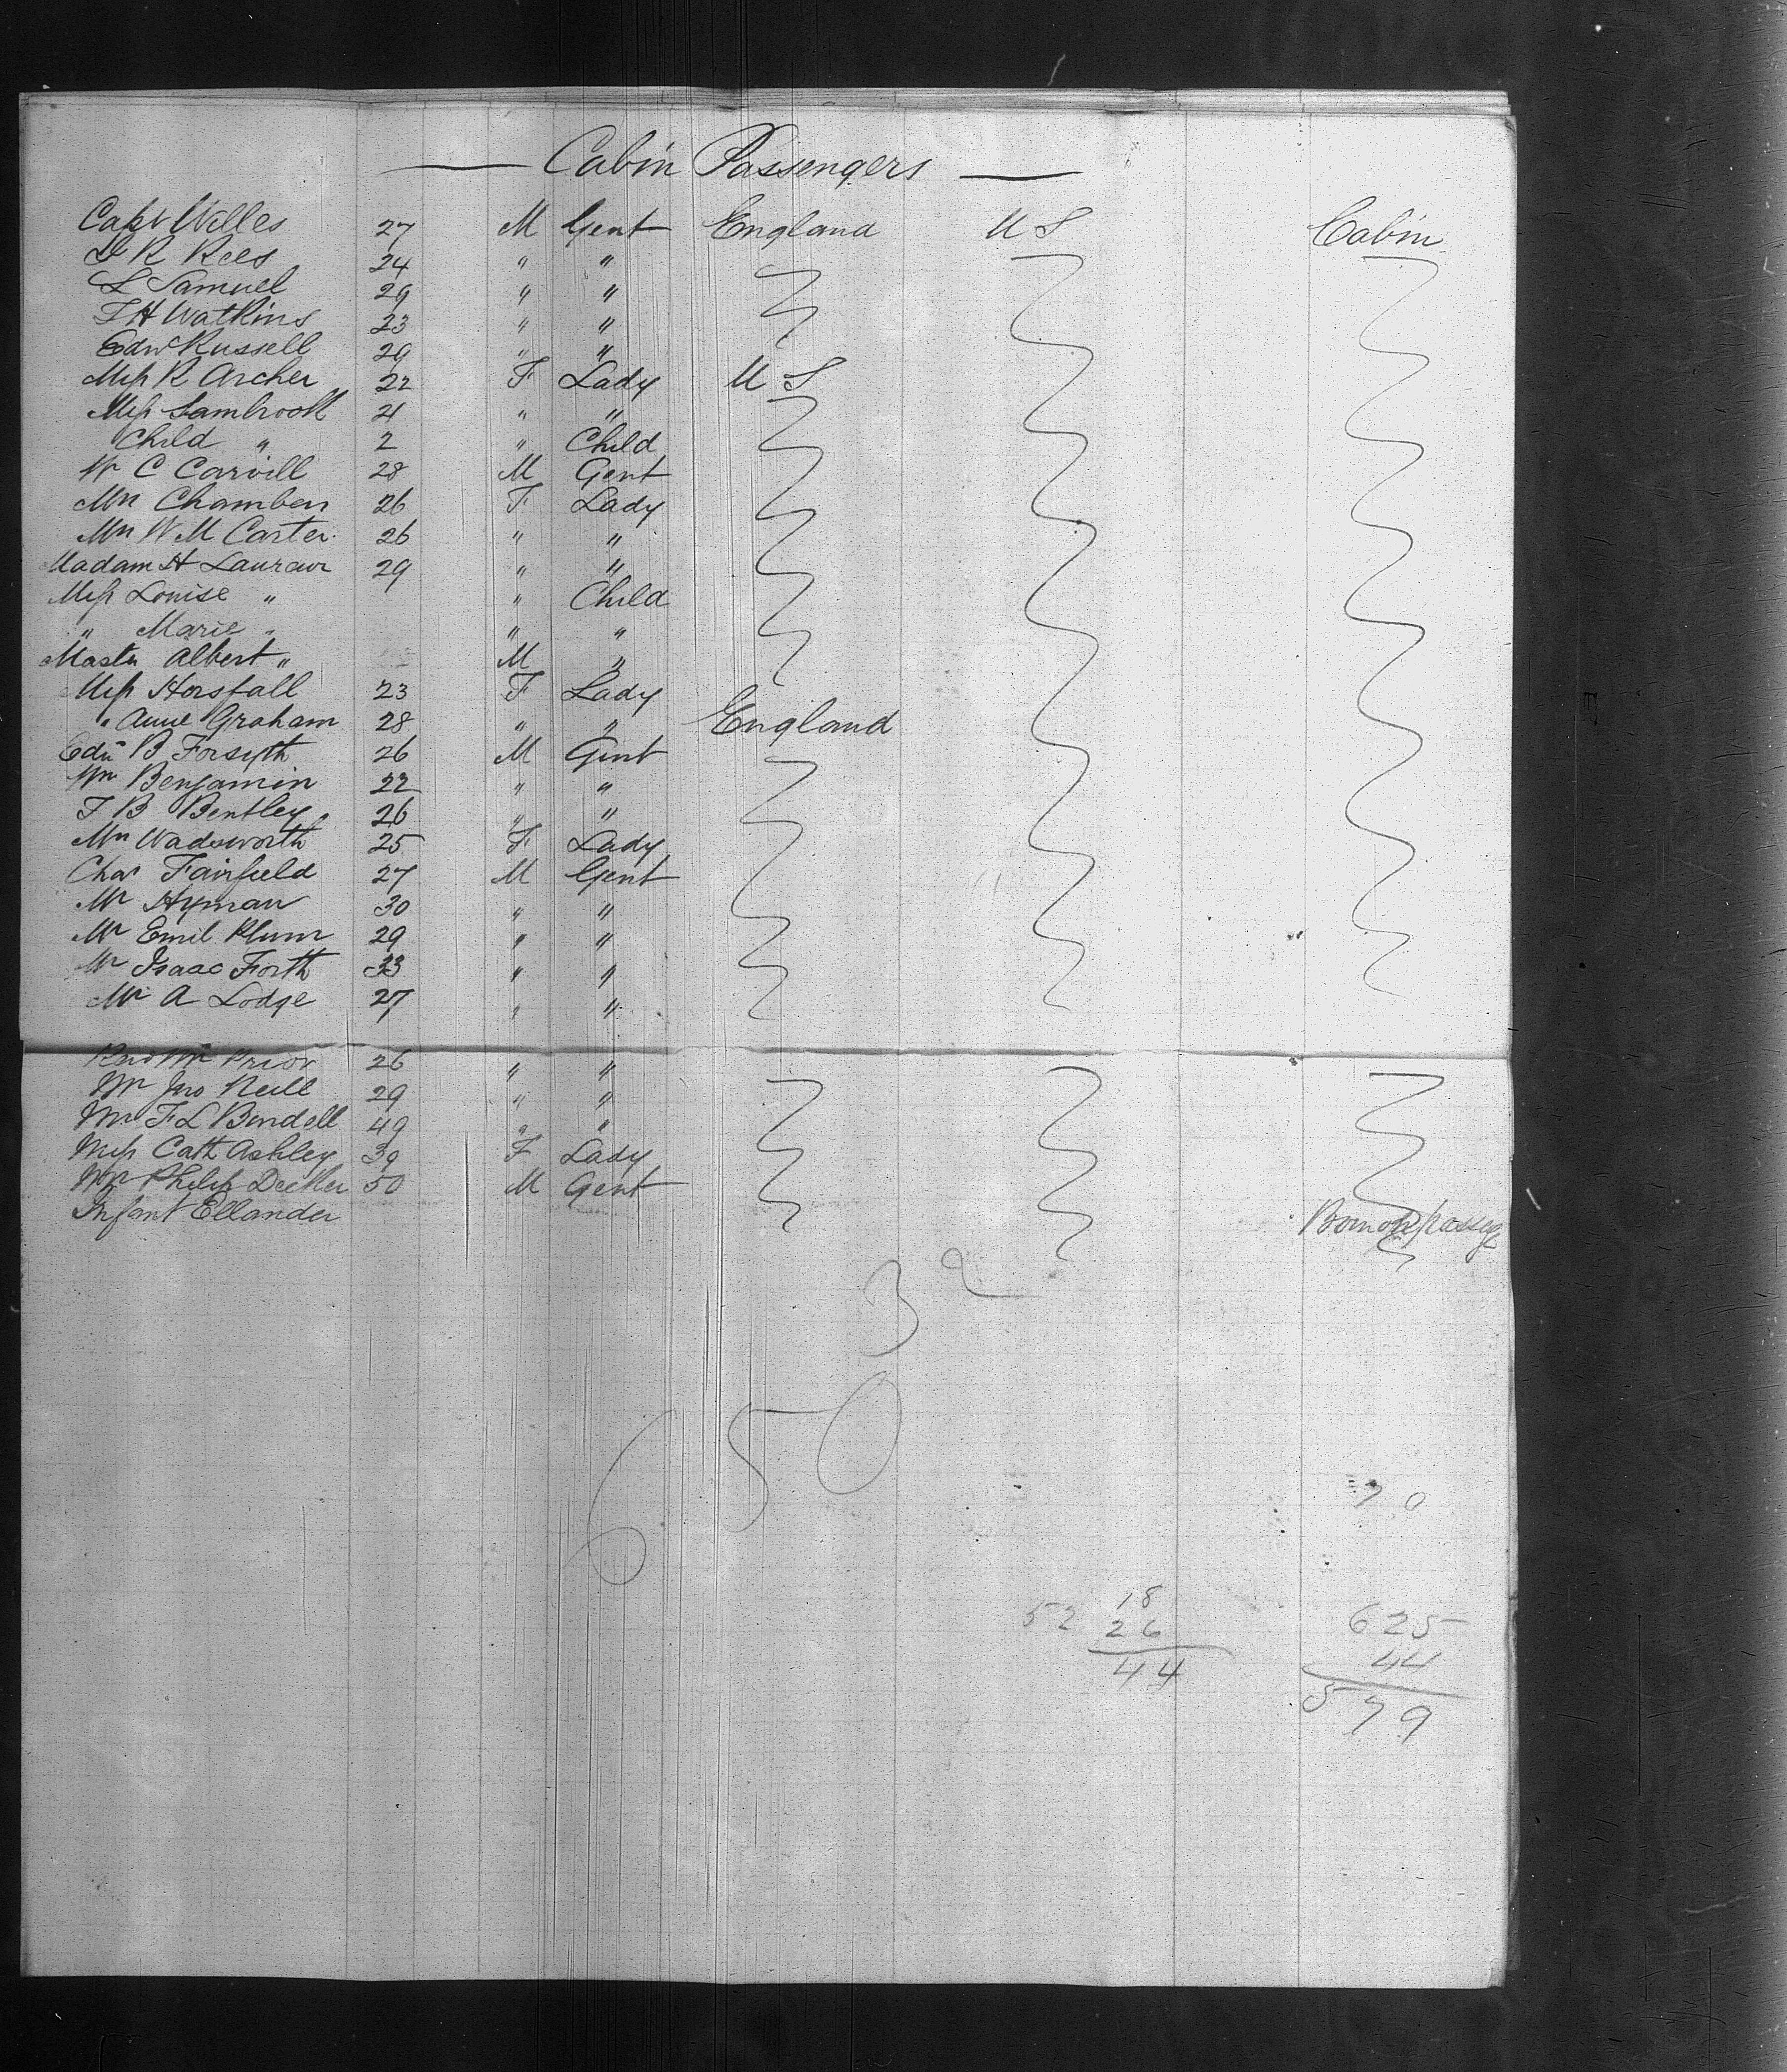 Cabin Passengers
Capt Welles 27 M Gent England U S Cabin
D R Rees 24 " "
L Samuel 29 " "
T H Watkins 23 " "
Edwd Russell 29 " "
Miss R Archer 22 F Lady U S
Miss Sambrook 21 " "
Child " 2 " Child
W C Carvill 28 M Gent
Mrs Chambers 26 F Lady
Mrs W M Carter 26 " "
Madam H 29 " "
Miss Louise " " Child
" Marie " " "
Master Albert " M "
Miss Horsfall 23 F Lady
" Anne Graham 28 " " England
Edw B Forsyth 26 M Gent
Mr Benjamin 22 " "
F B Bentley 26 " "
Mrs Wadsworth 25 F Lady
Chas Fairfield 27 M Gent
Mr Hyman 30 " "
Mr Emil Plum 29 " "
Mr Isaac Forth 33 " "
Mr A Lodge 27 " "
Prior 26 " "
Mr Jno Neill 29 " "
Mr F L Bendell 49 " "
Miss Cath Ashley 39 F Lady
Mr Philip Decker 50 M Gent
Infant Ellander Born on passage
32
650
70
18
52 26 625
44 44
579